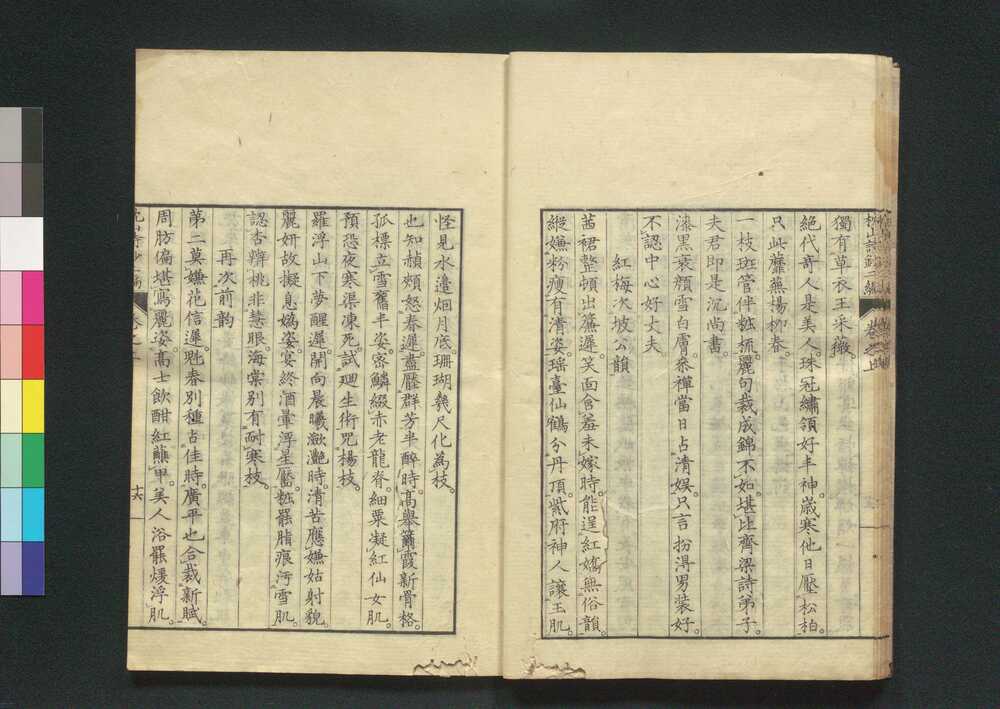 獨有草衣王采薇
絶代奇人是美人。珠冠繡領好丰神。歳寒他日壓松柏。
只此蘼蕪楊柳春。
一枝斑管伴粧梳。麗句裁成錦不如。堪比齊梁詩弟子。
夫君即是沉尚書。
漆黒衰顔雪白膚。叅禪當日占清娯。只言扮淂男装好。
不認中心好丈夫
紅梅次坡公韻
茜裙整頓出簾遲。笑面含羞未嫁時。能逞紅嬌無俗韻。
縱嫌粉瘦有清姿。瑶臺仙鶴分丹頂。紫府神人讓玉肌。
怪見水邉烟月底。珊瑚幾尺化為枝。
也知赬頰怒春遲。盡壓群芳半醉時。高擧霞新骨格。
孤標立雪舊丰姿。宻鱗綴赤老龍脊。細粟凝紅仙女肌。
預恐夜寒渠凍死。試廻生術咒楊枝。
羅浮山下夢醒遲。開向晨曦瀲灔時。清苦應嫌姑射貌。
麗妍故擬息嬀姿。宴終酒暈浮星靨。粧罷脂痕汚雪肌。
認杏辨桃非慧眼。海棠别有耐寒枝。
再次前韵
第二莫嫌花信遲。魁春别種占佳時。廣平也合裁新賦。
周肪偏堪寫麗姿。高士飲酣紅蘸甲。美人浴罷煖浮肌。
十六